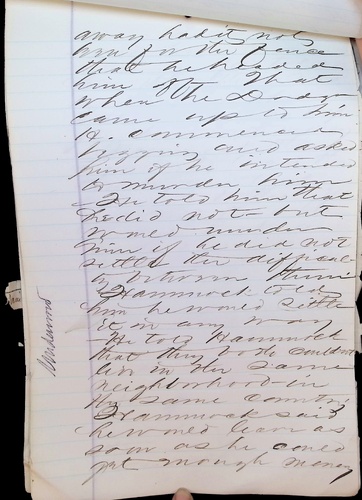 away had it not
been for the fence
that he headed
him off. That
when the Dodr
came up to him
H. commenced
begging and asked
him if he intended
to murder him
He told him that
he did not - but
would murder
him if he did not
settle the difficul
ty between them
Hammock told
him he would settle
it in any way
He told Hammock
that they both could not
live in the same
neighborhood - in
the same country
Hammock said
he would leave as
soon as he could
get enough money
Underwood